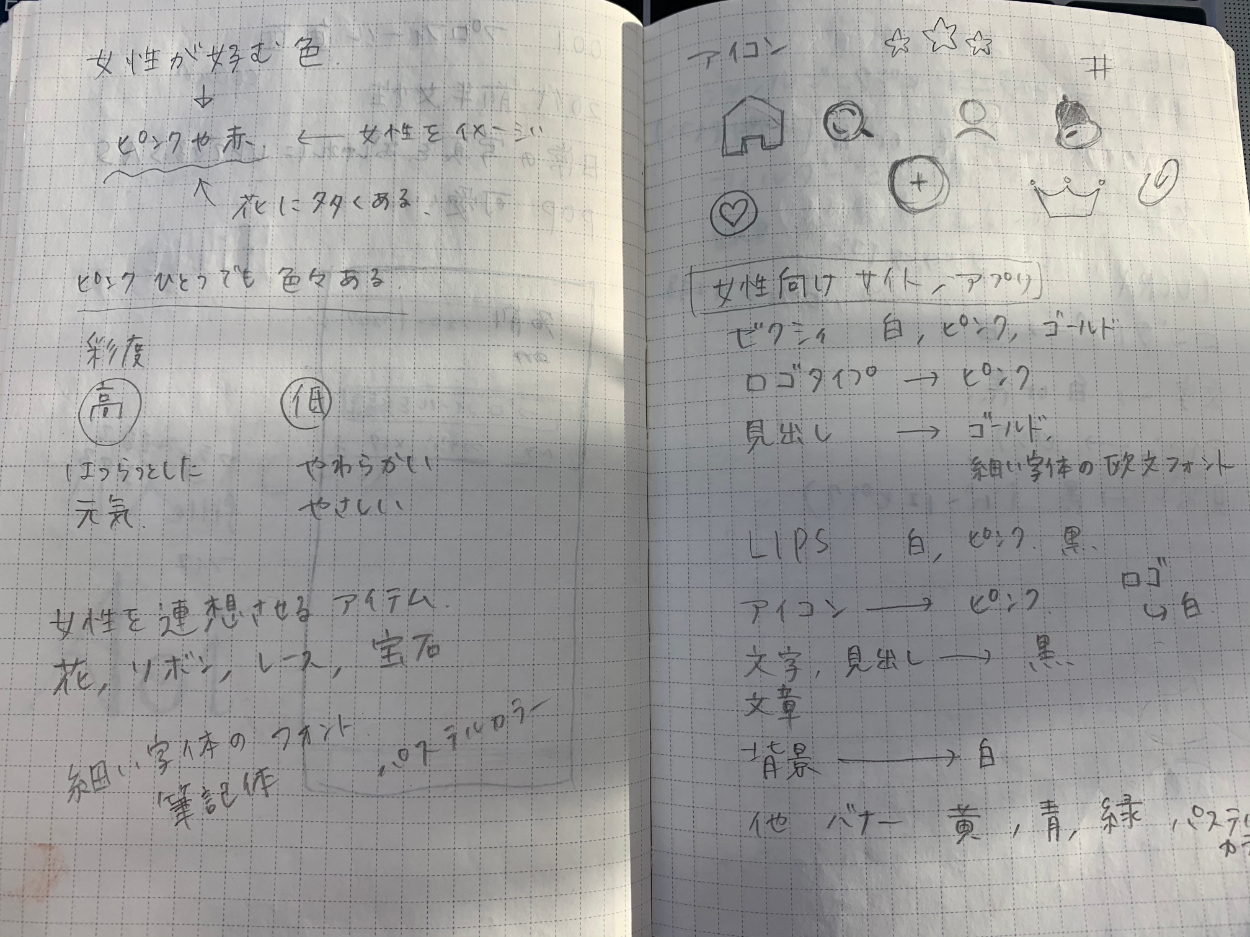 女性が好む色
↓
ピンクや赤 ← 女性をイメージ
↖ 花に多くある
ピンクひとつでも色々ある
彩度
高 低
はつらつとした やわらかい
元気 やさしい
女性を連想させるアイテム
花, リボン, レース, 宝石
細い字体のフォント
筆記体
パステルカラー
アイコン
#
女性向けサイト、アプリ
白, ピンク, ゴールド
ロゴタイプ → ピンク
見出し → ゴールド,
細い字体の欧文フォント
LIPS 白, ピンク 黒
アイコン → ピンク
ロゴ
↪ 白
文字, 見出し → 黒
文章
背景 → 白
他 バナー 黄, 青, 緑, パステル
カラ